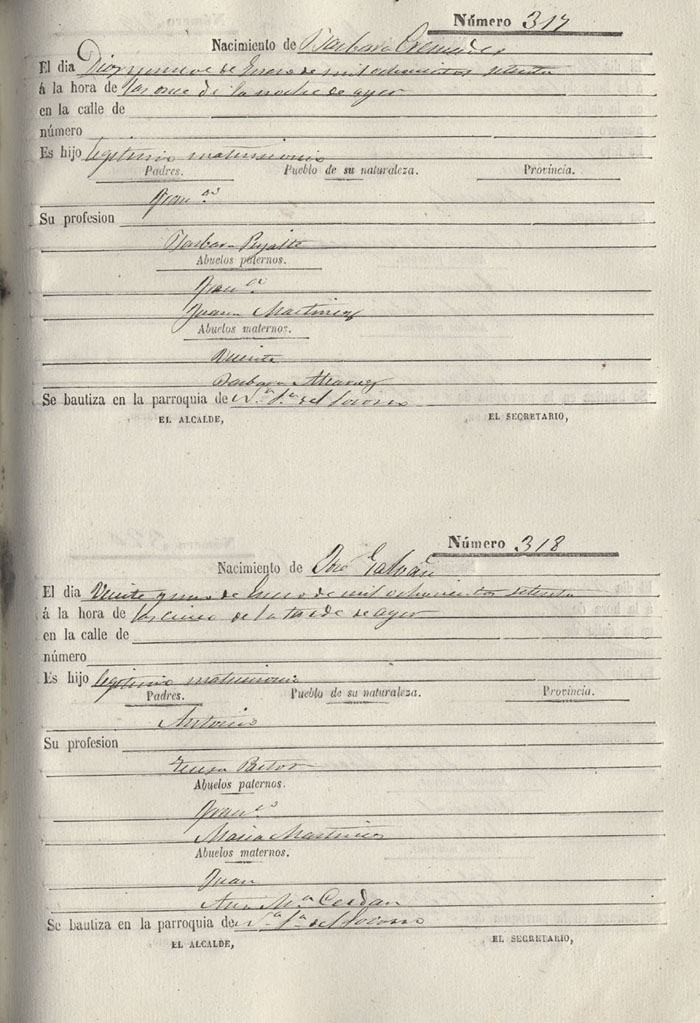 Número 317
Nacimiento de Barbara Cremades
El dia Diez y nueve de Enero de mil ochocientos setenta
á la hora de las once de la noche de ayer
en la calle de
número
Es hijo legitimo matrimonio
Padres. Pueblo de su naturaleza. Provincia.
Fran.co
Su profesion
Barbara
Abuelos paternos.
Fran.co
Juana Martinez
Abuelos maternos.
Vicente
Barbara
Se bautiza en la parroquia de N.a S.a del Socorro
EL ALCALDE, EL SECRETARIO,
Número 318
Nacimiento de José Galvañ
El dia Veinte y uno de Enero de mil ochocientos setenta
á la hora de las cinco de la tarde de ayer
en la calle de
número
Es hijo legitimo matrimonio
Padres. Pueblo de su naturaleza. Provincia.
Antonio
Su profesion
Teresa
Abuelos paternos.
Fran.co
Maria Martinez
Abuelos maternos.
Juan
Ana M.a Cerdan
Se bautiza en la parroquia de N.a S.a del Socorro
EL ALCALDE, EL SECRETARIO,